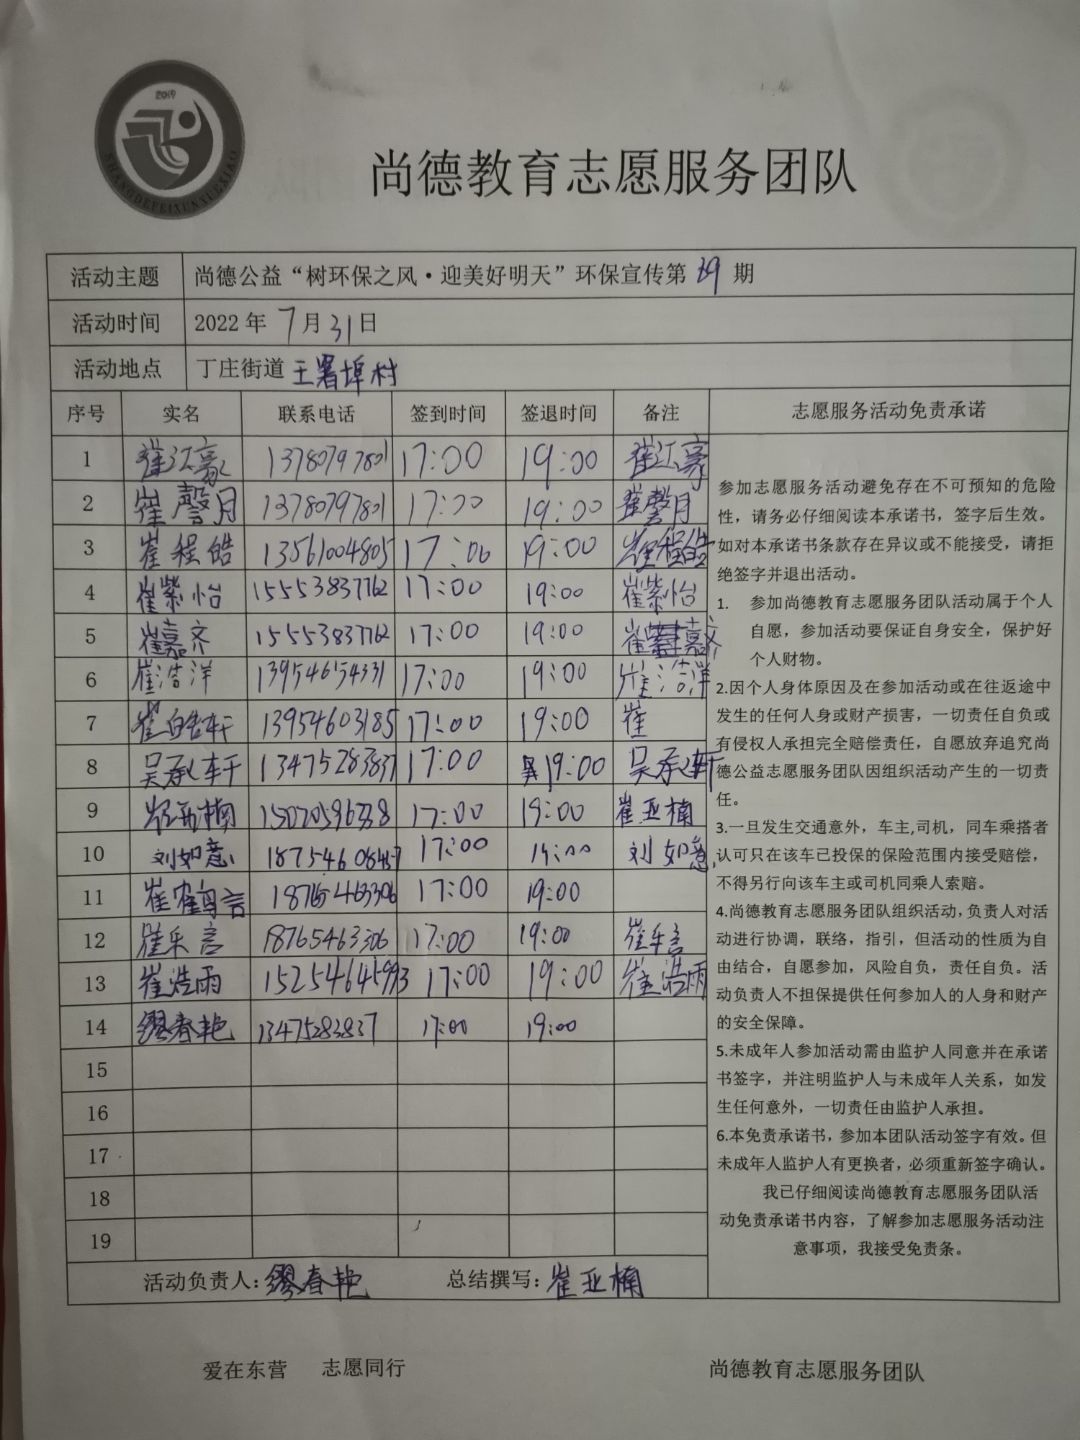 2019
SHANGDEPEIXUNXUEXIAO
尚德教育志愿服务团队
活动主题 尚德公益“树环保之风·迎美好明天”环保宣传第39期
活动时间 2022年7月31日
活动地点 丁庄街道王署埠村
序号 实名 联系电话 签到时间 签退时间 备注 志愿服务活动免责承诺
1 崔江豪 13780797801 17:00 19:00 崔江豪
2 崔馨月 13780797801 17:00 19:00 崔馨月
3 崔程皓 13561004805 17:00 19:00 崔程皓
4 崔紫怡 15553837762 17:00 19:00 崔紫怡
5 崔嘉齐 15553837762 17:00 19:00 崔嘉齐
6 崔浩洋 13954654331 17:00 19:00 崔浩洋
7 崔皓轩 13954603185 17:00 19:00 崔
8 吴承轩 13475283837 17:00 19:00 吴承轩
9 崔亚楠 17:00 19:00 崔亚楠
10 刘如意 17:00 刘如意
11 崔 18765463306 17:00 19:00
12 崔乐言 18765463306 17:00 19:00 崔乐言
13 崔浩雨 15254645993 17:00 19:00 崔浩雨
14 缪春艳 13475283837 17:00 19:00
15
16
17
18
19
参加志愿服务活动避免存在不可预知的危险
性，请务必仔细阅读本承诺书，签字后生效。
如对本承诺书条款存在异议或不能接受，请拒
绝签字并退出活动。
1. 参加尚德教育志愿服务团队活动属于个人
自愿，参加活动要保证自身安全，保护好
个人财物。
2.因个人身体原因及在参加活动或在往返途中
发生的任何人身或财产损害，一切责任自负或
有侵权人承担完全赔偿责任，自愿放弃追究尚
德公益志愿服务团队因组织活动产生的一切责
任。
3.一旦发生交通意外，车主,司机，同车乘搭者
认可只在该车已投保的保险范围内接受赔偿，
不得另行向该车主或司机同乘人索赔。
4.尚德教育志愿服务团队组织活动,负责人对活
动进行协调，联络，指引，但活动的性质为自
由结合，自愿参加，风险自负，责任自负。活
动负责人不担保提供任何参加人的人身和财产
的安全保障。
5.未成年人参加活动需由监护人同意并在承诺
书签字，并注明监护人与未成年人关系，如发
生任何意外，一切责任由监护人承担。
6.本免责承诺书，参加本团队活动签字有效。但
未成年人监护人有更换者，必须重新签字确认。
我已仔细阅读尚德教育志愿服务团队活
动免责承诺书内容，了解参加志愿服务活动注
意事项，我接受免责条。
活动负责人：缪春艳 总结撰写：崔亚楠
爱在东营 志愿同行 尚德教育志愿服务团队